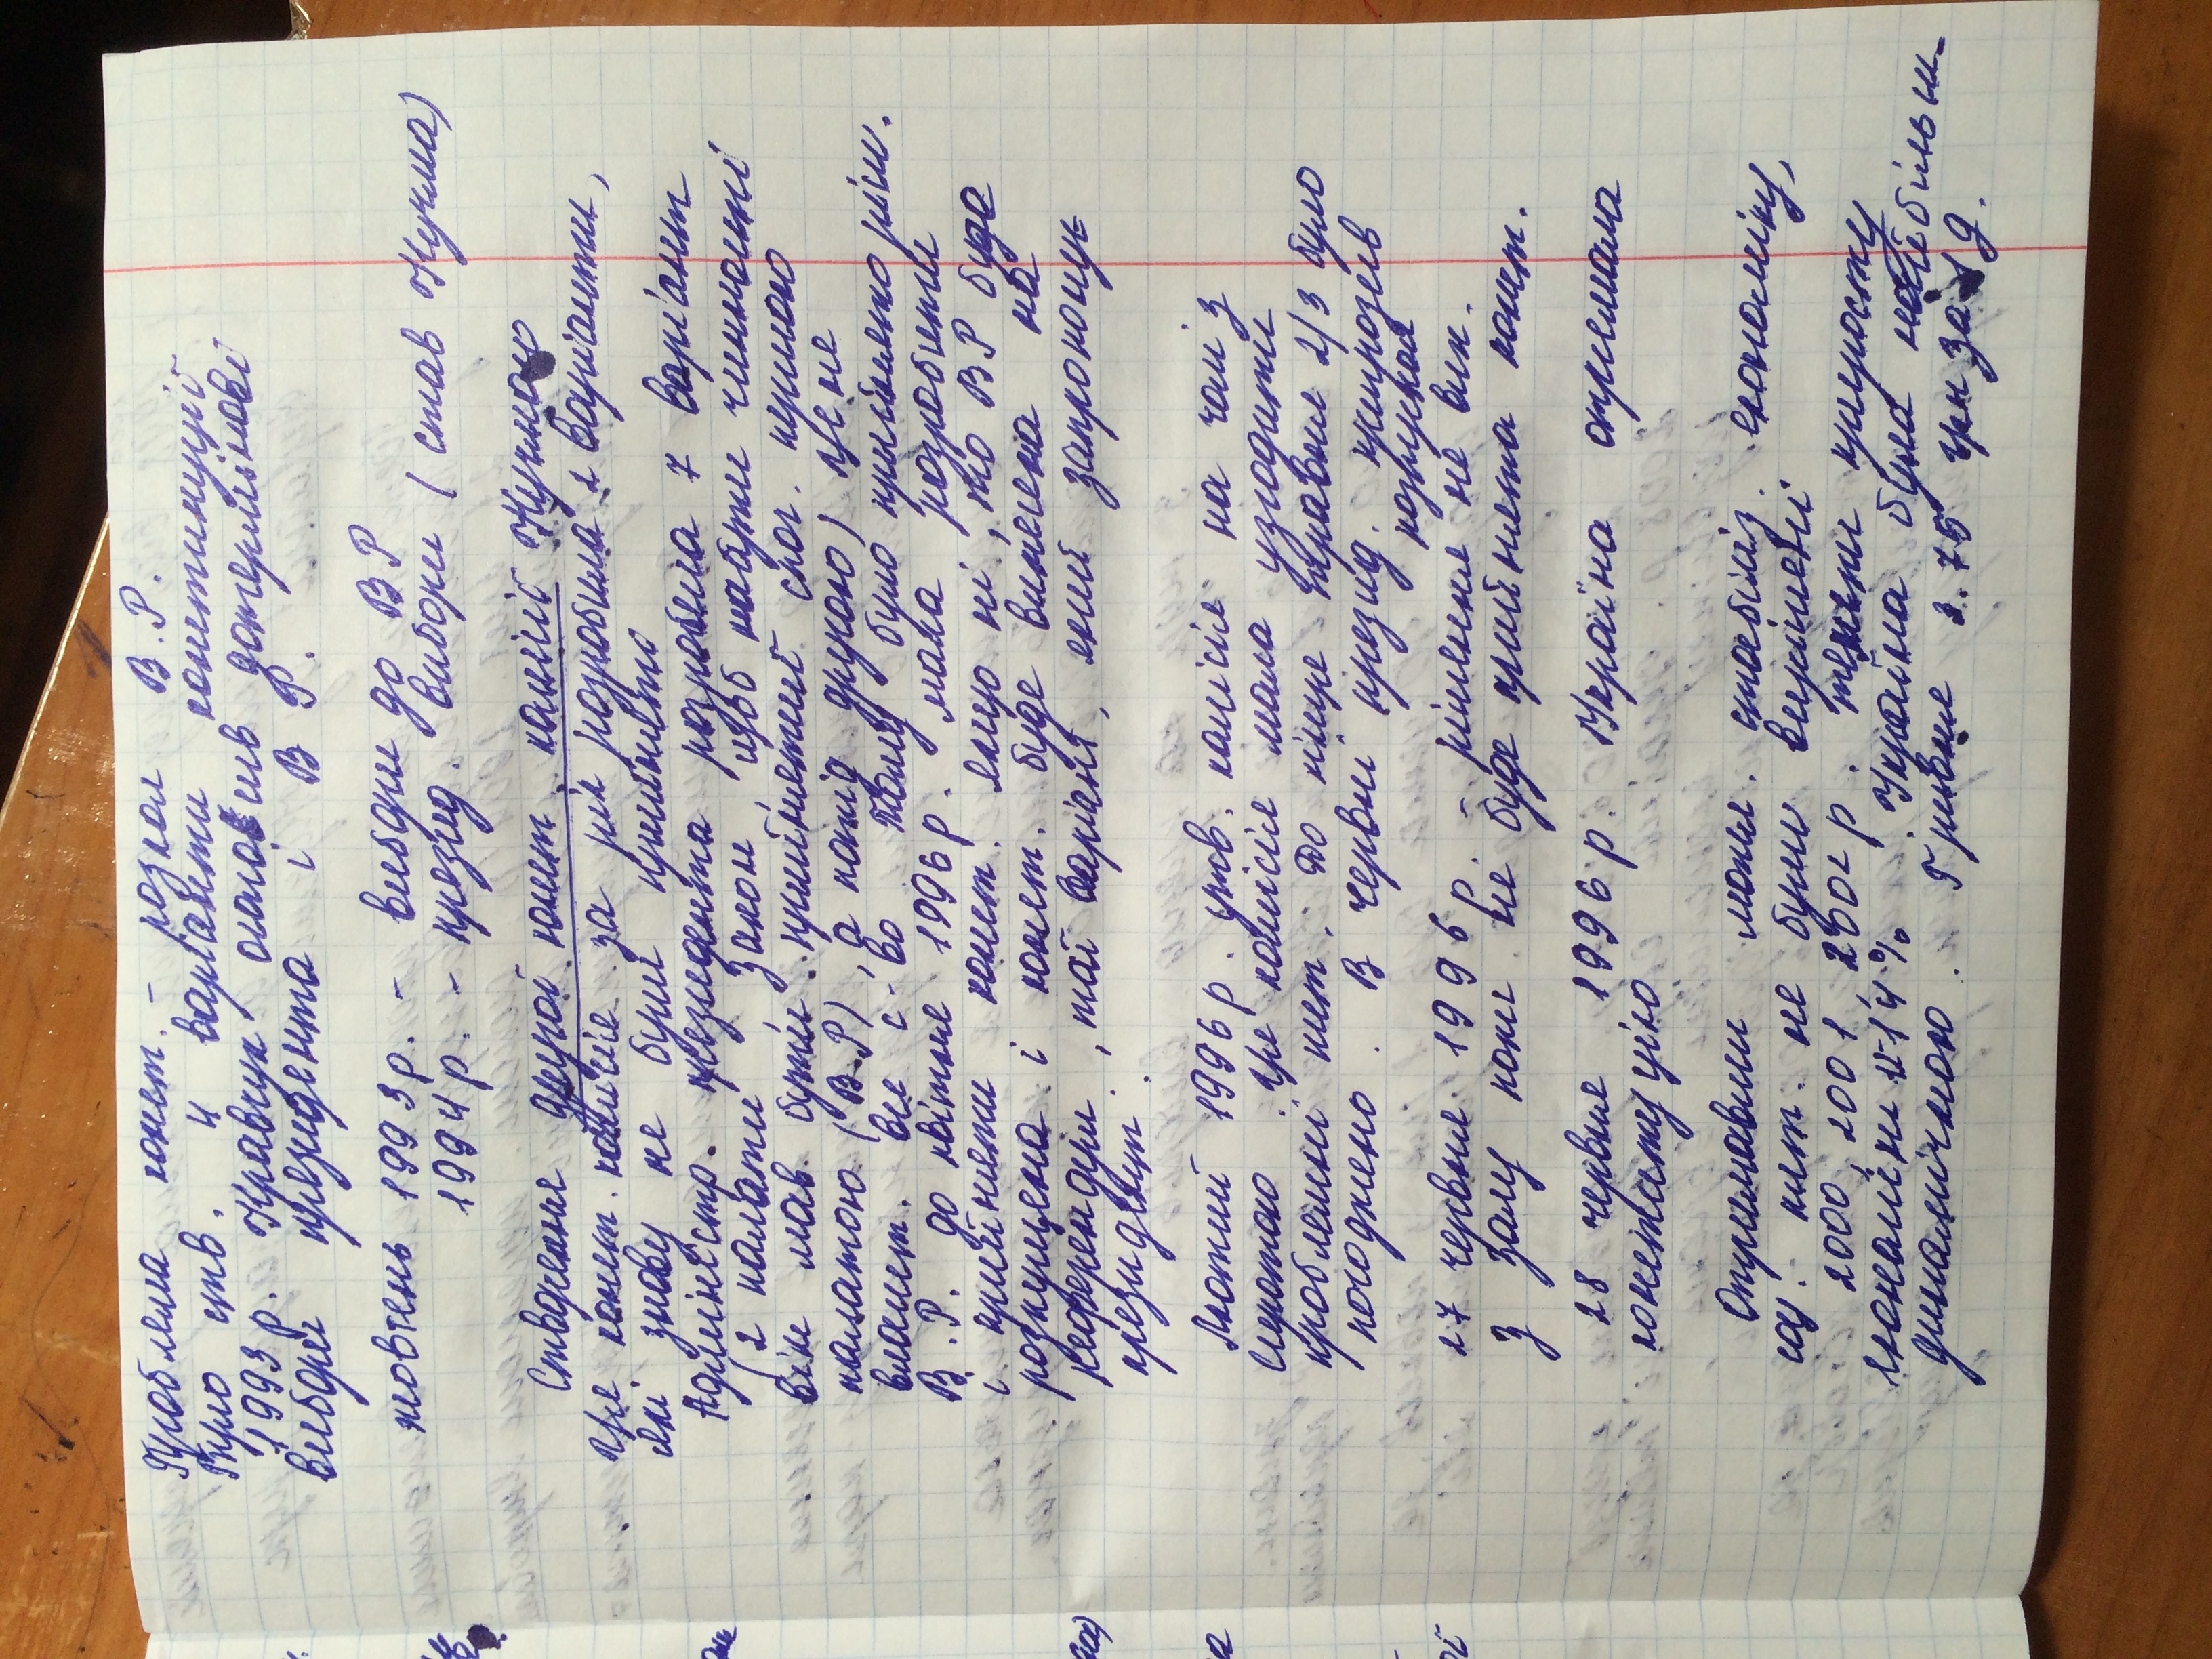 Проблема конст. - розкол В.Р.
Було ств. 4 варіанти конституції
1993 р. Кравчук оголосив дотермінові
вибори президента і В Р.
жовтень 1993 р. - вибори до ВР
1994 р. - презид. вибори (став Кучма)
Створення другої конст. комісії Кучмою
Ця конст. комісія за рік розробила 2 варіанти,
які знову не були прийняті
Адміністр. президента розробила 7 варіант
(2 палати, закон, щоб набрти чинності
він мав бути прийнятий споч. першою
палатою (В.Р), а потід другою) Це не
влашт. все с-во. Тому було прийнято ріш.
В.Р. до квітня 1996 р. мала розробити
і прийняти конст. якщо ні, то ВР буде
розпущена і конст. буде винесена на
референдум, той варіант, який запропонує
президент.
Лютий 1996 р. ств. комісія на чолі з
Сиротою. Ця комісія мала узгодити
проблемні пит. До кінця травня 2/3 було
погоджено. В червні презид. пригрозив
розпуском
27 червня 1996 р. - рішення не вих.
з залу поки не буде прийнята конст.
28 червня 1996 р. Україна отримала
конституцію
Отримавши можл. стабіліз. економіку,
соц. пит. не були вирішені
2000, 2001, 2002 р. темпи приросту
економіки 14%. Україна була найбільш
динамічною. Гривня 2.75 грн за 1 д.